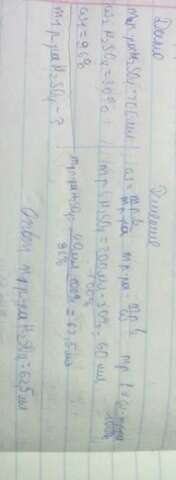 Дано
m р-ра H₂SO₄ = 200 мл
ω₂ H₂SO₄ = 30%
ω₁ = 96%
m р-ра H₂SO₄ - ?
Решение
ω = m р.в / m р-ра
m р-ра = m р.в / ω
m р.в = ω · m р-ра / 100%
m р.в H₂SO₄ = 200 мл · 30% / 100% = 60 мл
m р-ра H₂SO₄ = 60 мл · 100% / 96% = 62,5 мл
Ответ m р-ра H₂SO₄ = 62,5 мл